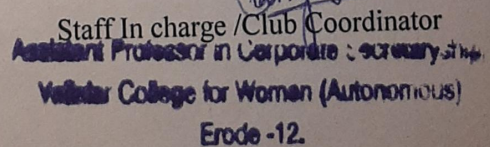 Staff In charge /Club Coordinator
Assistant Professor in Corporate Secretaryship
Vellalar College for Women (Autonomous)
Erode -12.